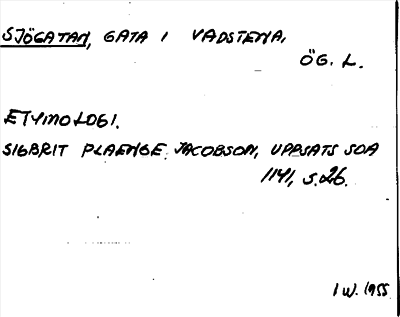 SJÖGATAN, GATA I VADSTENA,
ÖG. L.
ETYMOLOGI.
SIGBRIT PLAENGE JACOBSON, UPPSATS SOA
1141, S.26.
I W. 1955